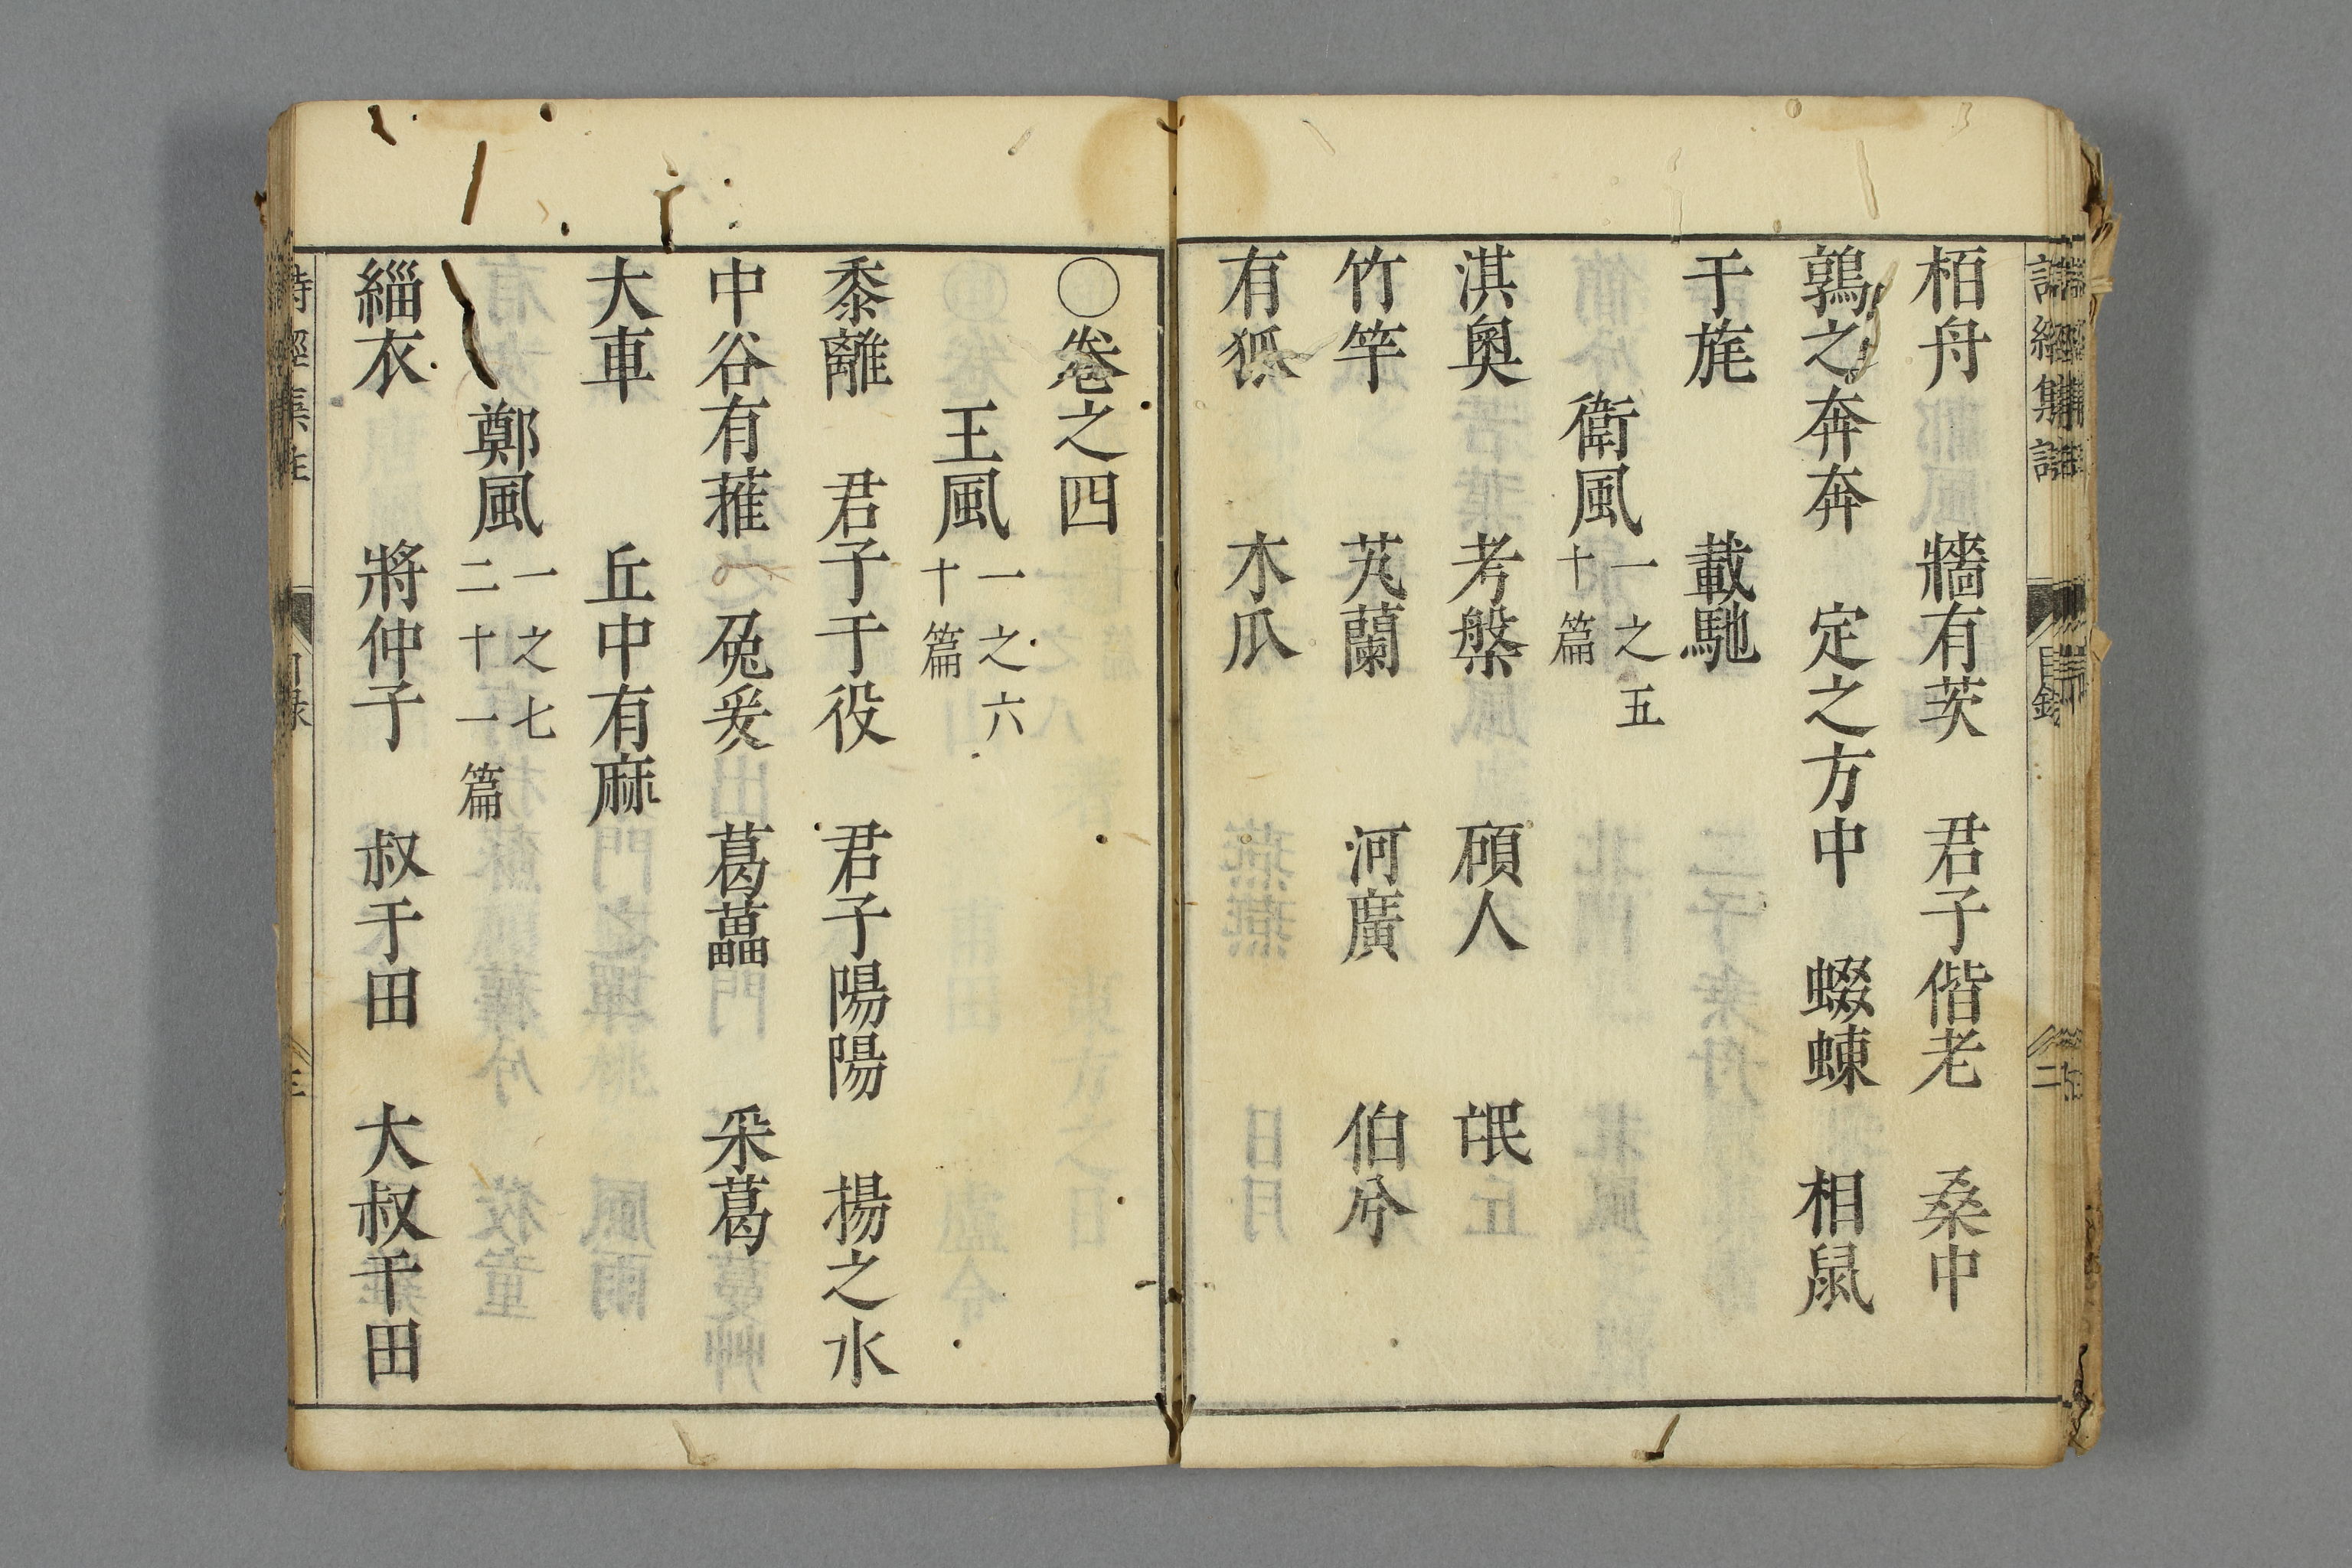 詩經集註 目錄 二
栢舟 牆有茨 君子偕老 桑中
鶉之奔奔 定之方中 蝃蝀 相鼠
于旄 載馳
衛風 一之五 十篇
淇奧 考槃 碩人 氓
竹竿 芄蘭 河廣 伯兮
有狐 木瓜
○卷之四
王風 一之六 十篇
黍離 君子于役 君子陽陽 揚之水
中谷有蓷 兔爰 葛藟 采葛
大車 丘中有麻
鄭風 一之七 二十一篇
緇衣 將仲子 叔于田 大叔于田